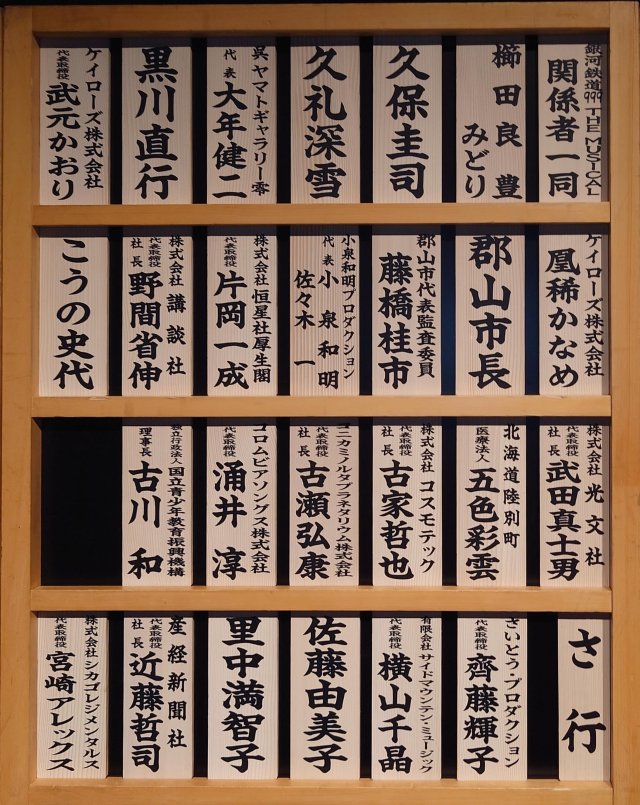 銀河鉄道999 THE MUSICAL
関係者一同
櫛田良豊
みどり
久保圭司
久礼深雪
呉ヤマトギャラリー零
代表 大年健二
黒川直行
ケイローズ株式会社
代表取締役 武元かおり
ケイローズ株式会社
凰稀かなめ
郡山市長
郡山市代表監査委員
藤橋桂市
小泉和明プロダクション
代表 小泉和明
佐々木一
株式会社恒星社厚生閣
代表取締役 片岡一成
株式会社講談社
代表取締役社長 野間省伸
こうの史代
株式会社光文社
代表取締役社長 武田真士男
北海道陸別町
医療法人 五色彩雲
株式会社コスモテック
代表取締役社長 古家哲也
コニカミノルタプラネタリウム株式会社
代表取締役社長 古瀬弘康
コロムビアソングス株式会社
代表取締役 涌井淳
独立行政法人国立青少年教育振興機構
理事長 古川和
さ行
さいとう・プロダクション
代表取締役 齊藤輝子
有限会社サイドマウンテン・ミュージック
横山千晶
佐藤由美子
里中満智子
産経新聞社
代表取締役社長 近藤哲司
株式会社シカゴレジメンタルス
代表取締役 宮崎アレックス